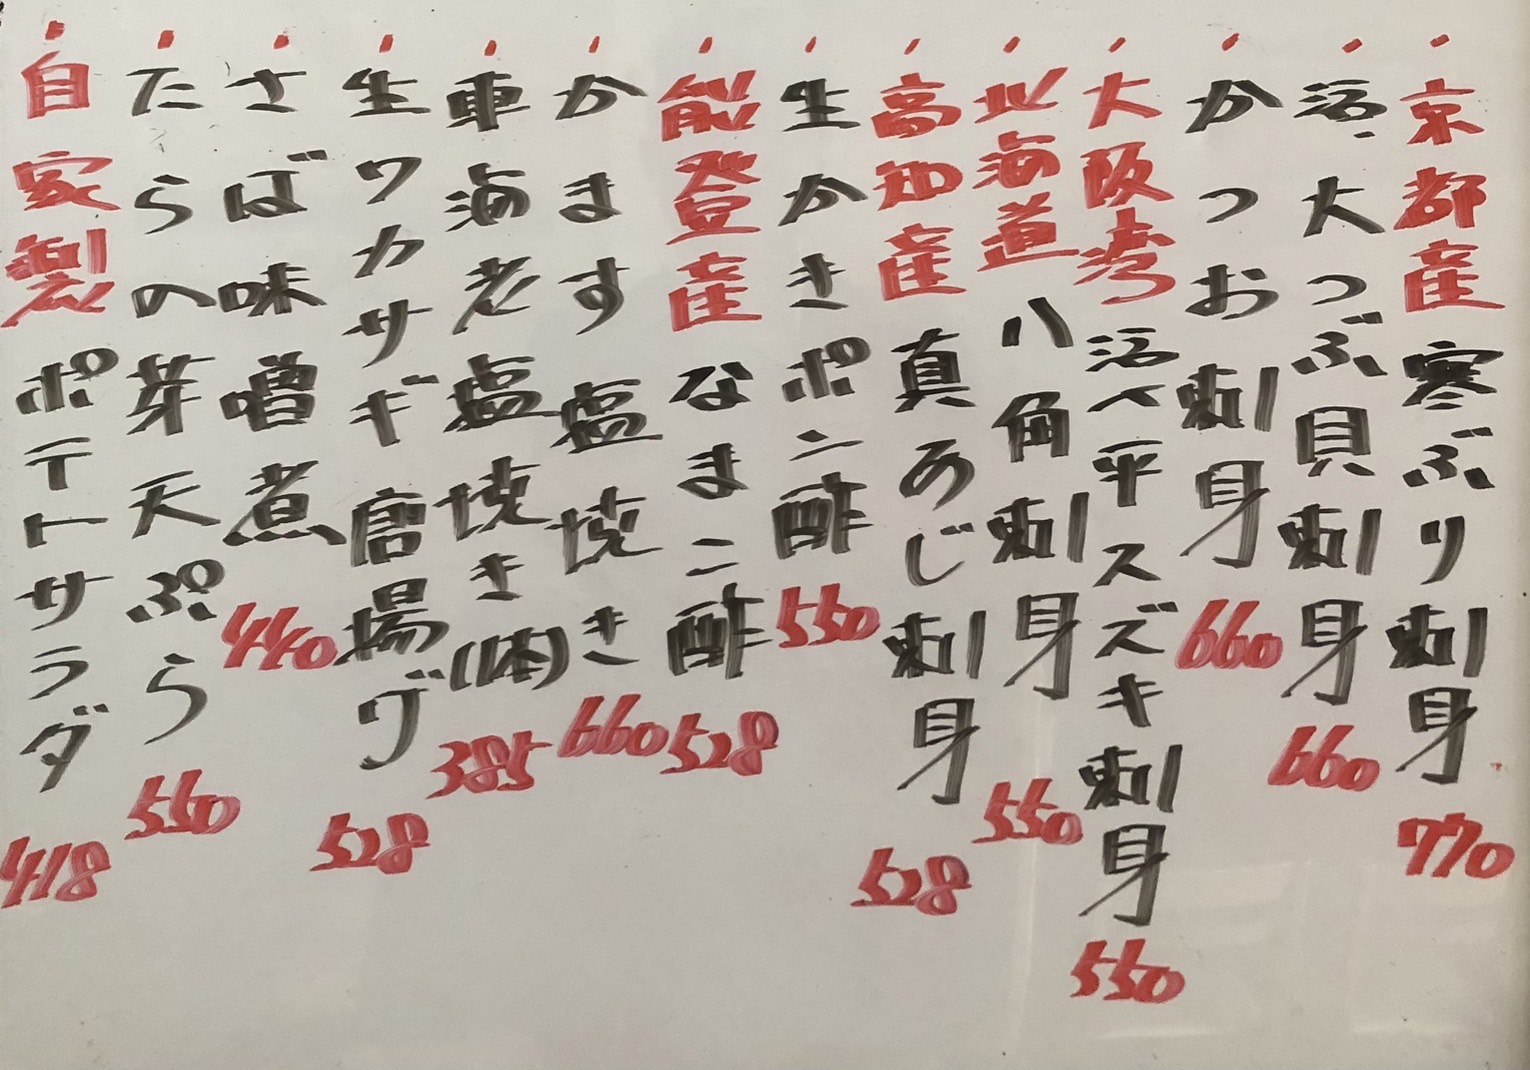 ・京都産寒ぶり刺身 770
・活、大つぶ貝刺身 660
・かつお刺身 660
・大阪湾活〆平スズキ刺身 550
・北海道八角刺身 550
・高知産真あじ刺身 528
・生かきポン酢 550
・能登産なまこ酢 528
・かます塩焼き 660
・車海老塩焼き(1本) 385
・生ワカサギ唐揚げ 528
・さば味噌煮 440
・たらの芽天ぷら 550
・自家製ポテトサラダ 418